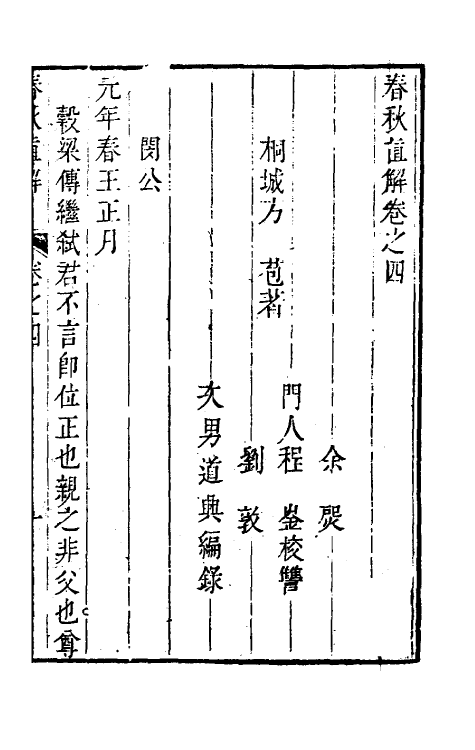 春秋直解卷之四
桐城方 苞著
余 焸
門人程 崟校讐
劉 敦
次男道興編錄
閔公
元年春王正月
穀梁傳繼弑君不言卽位正也親之非父也尊
春秋直解 卷之四 一